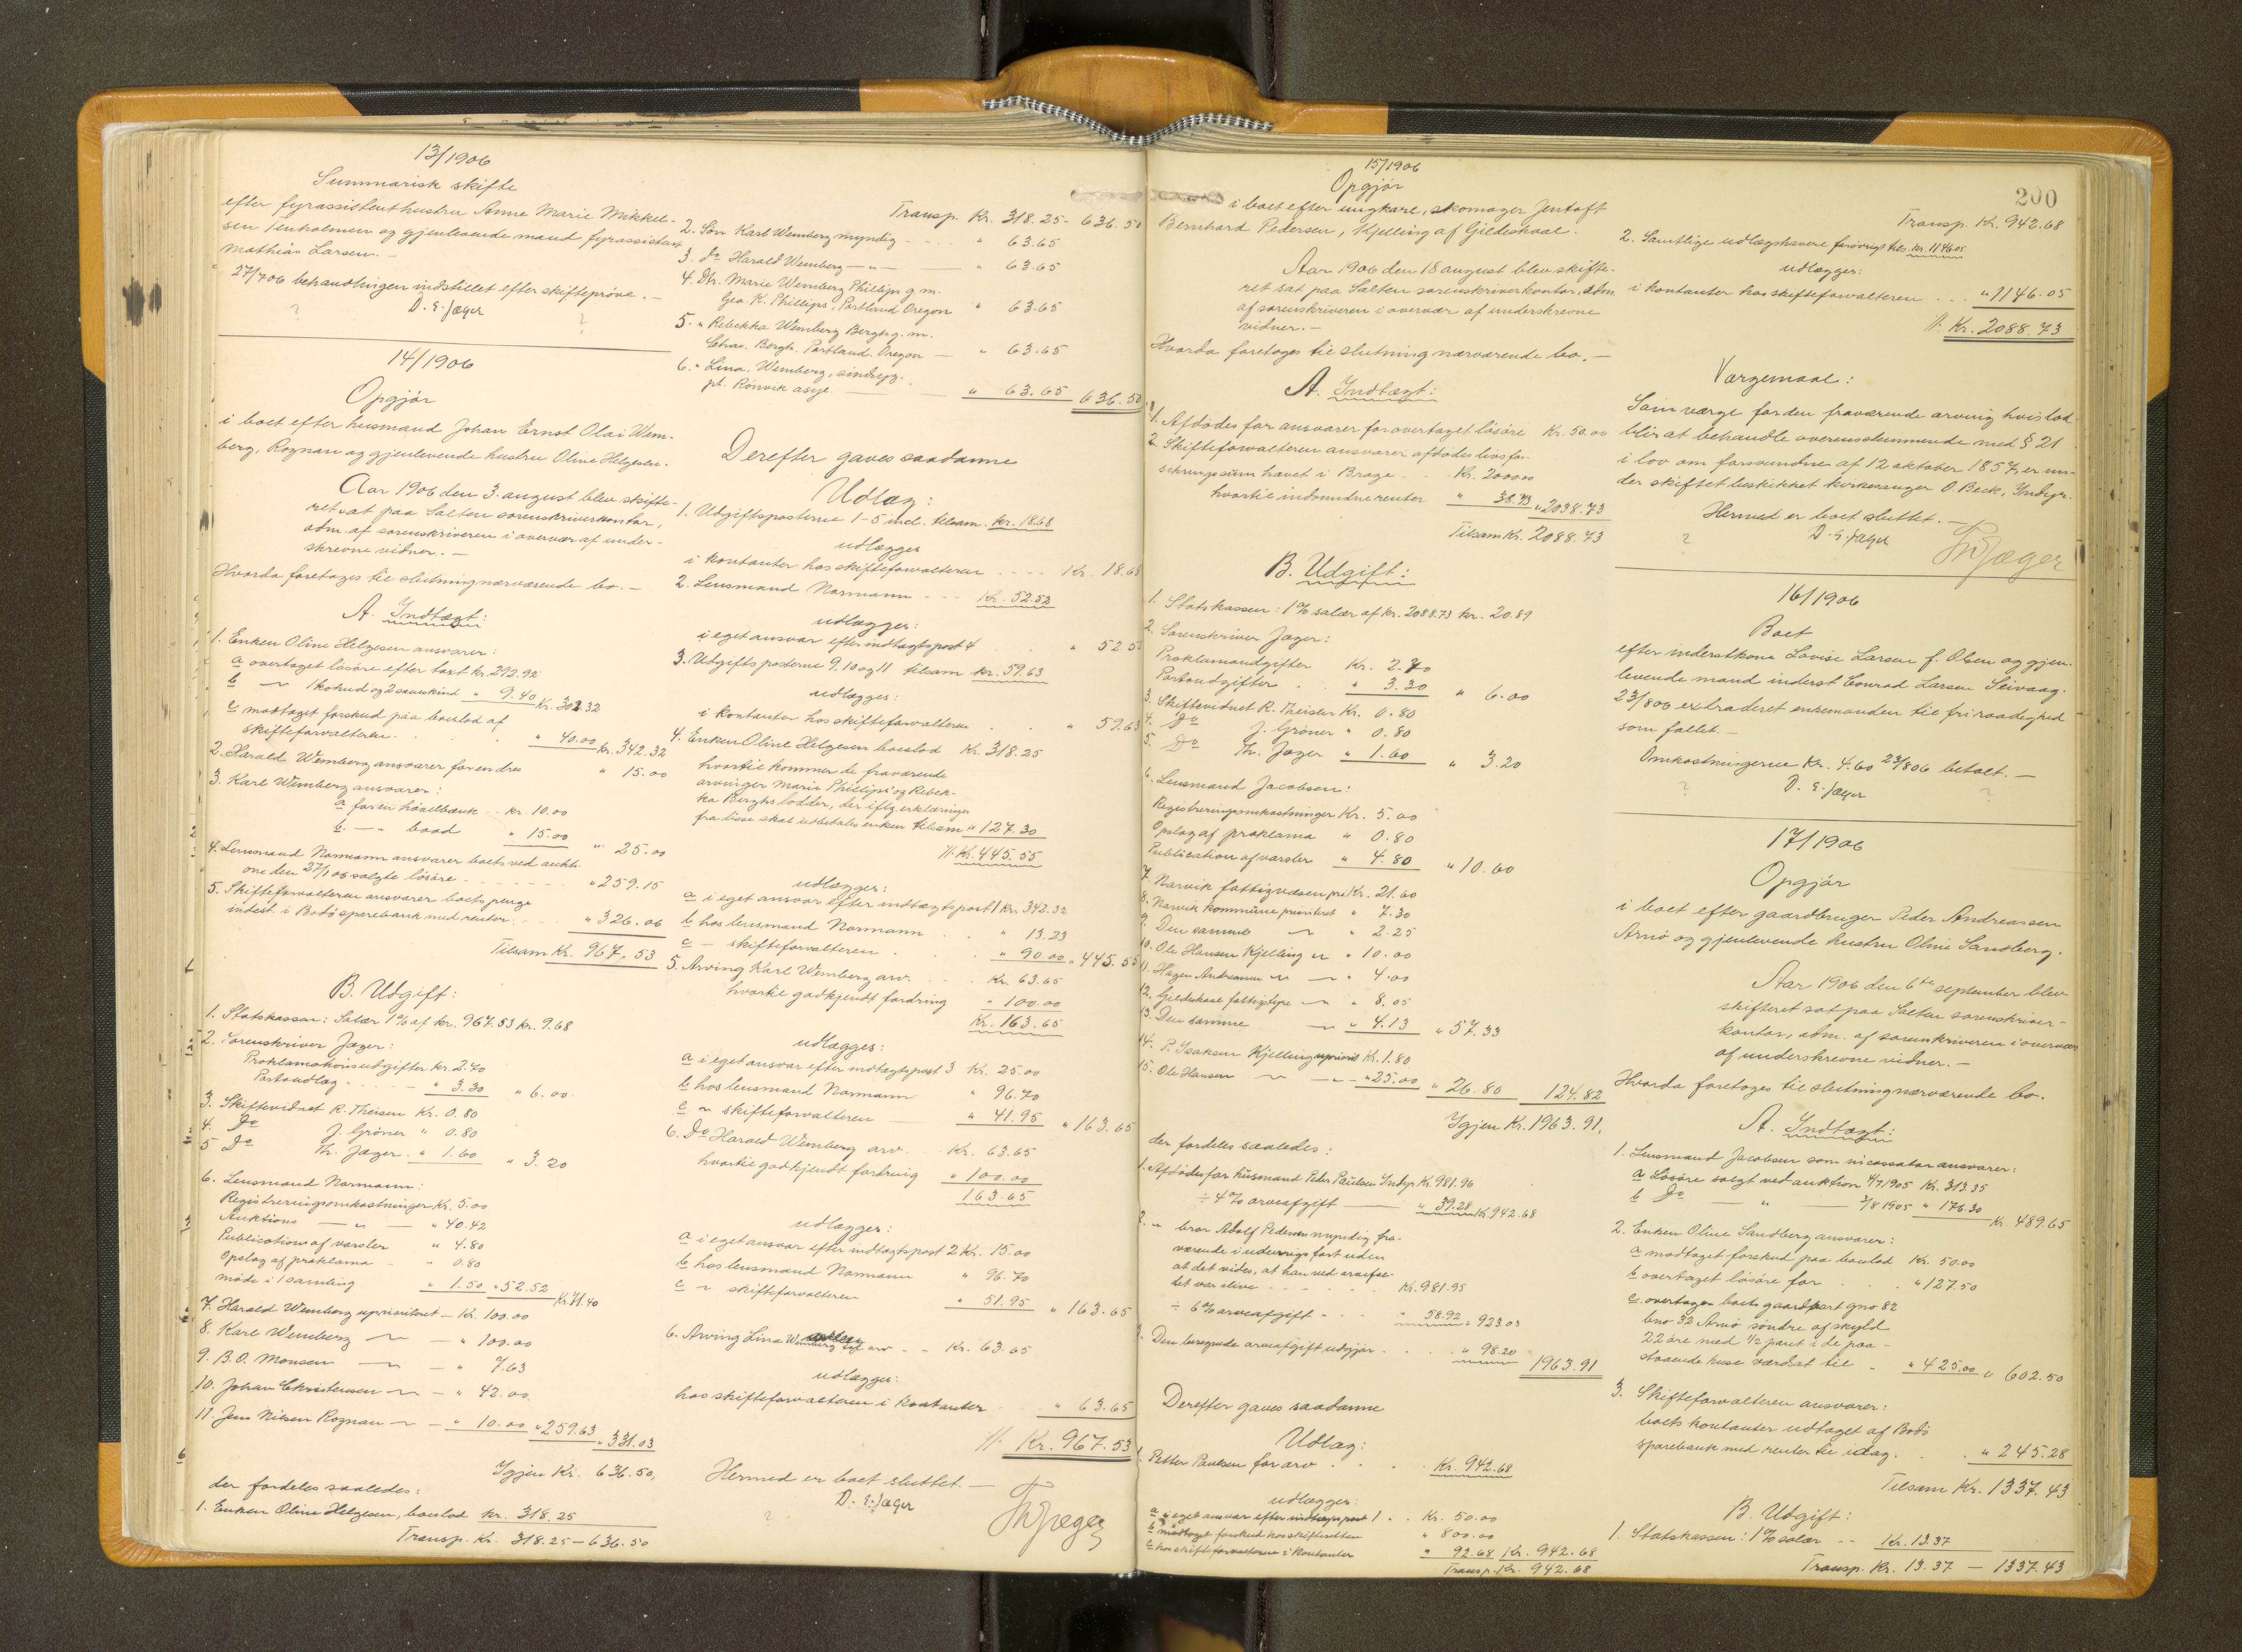 13/1906
Summarisk skifte
efter fyrassistenthustru Anne Marie Mikkel-
sen og gjenlevende mand fyrassistent
Mathias Larsen. -
27/7 06 behandlingen indstillet efter skifteprøve. -
D. E. Jæger
14/1906
Opgjør
i boet efter husmand Johan Ernst Olai Wem-
berg, Rognan og gjenlevende hustru Oline Helgesen.
Aar 1906 den 3. august blev skifte-
ret sat paa Salten sorenskriverkontor,
adm. af sorenskriveren i overvær af under-
skrevne vidner. -
Hvorda foretoges til slutning nærværende bo. -
A. Indtægt:
1. Enken Oline Helgesen ansvarer:
a overtaget løsøre efter taxt kr. 292.92
b — 1 kohud og 2 saueskind " 9.40 Kr. 302.32
c modtaget forskud paa boeslod af
skifteforvalteren. " 40.00 kr. 342.32
2. Harald Wemberg ansvarer for en dres " 15.00
3. Karl Wemberg ansvarer:
a for en høvelbænk .. kr. 10.00
b. — " baad " 15.00 " 25.00
4. Lensmand Normann ansvarer boets ved aukti-
on den 27/1 06 solgte løsøre - " 259.15
5. Skifteforvalteren ansvarer boets penge
indest. i Bodø sparebank med renter. " 326.06
Tilsam Kr. 967.53
B. Udgift:
1. Statskassen: Salær 1% af kr. 967.53 kr. 9.68
2. Sorenskriver Jæger:
Proklamationsudgifter Kr. 2.70
Portoudlæg - " 3.30 " 6.00
3. Skiftevidnet R. Theisen Kr. 0.80
4. Do J. Grøner " 0.80
5 Do Th. Jæger. " 1.60 " 3.20
6. Lensmand Normann:
Registreringsomkostninger Kr. 5.00
Auktions — " — " 40.42
Publication af varsler " 4.80
Opslag af proklama - " 0.80
møde i 1 samling " 1.50 " 52.52 Kr. 71.40
7. Harald Wemberg uprioritert - Kr. 100.00
8. Karl Wemberg — - " 100.00
9. B. O. Monsen — - " 7.63
10. Johan Christensen — - " 42.00
11. Jens Nilsen Rognan — - " 10.00 " 259.63 " 331.03
Igjen Kr. 636.50,
der fordeles saaledes:
1. Enken Oline Helgesen, boeslod kr. 318.25
Transp. Kr. 318.25 - 636.50
Transp. Kr. 318.25 - 636.50
2. Søn Karl Wemberg myndig - " 63.65
3. Do Harald Wemberg — " — " 63.65
4. Dtr. Marie Wemberg Phillips g. m.
Geo. K. Phillips, Portland Oregon " 63.65
5. " Rebekka Wemberg Bergh g. m.
Chas. Bergh. Portland. Oregon — " 63.65
6. " Lina. Wemberg, sindsyg.
pt. Rønvik asyl. - " 63.65 636.50
Derefter gaves saadanne
Udlæg:
1. Udgiftsposterne 1-5 incl. tilsam. kr. 18.68
udlægges
i kontanter hos skifteforvalteren - - - - Kr. 18.68
2. Lensmand Normann - - - Kr. 52.52
udlægges:
i eget ansvar efter indtægtspost 4 " 52.52
3. Udgiftsposterne 9. 10 og 11 tilsam kr. 59.63
udlægges:
i kontanter hos skifteforvalteren " 59.63
4. Enken Oline Helgesen boeslod Kr. 318.25
hvortil kommer de fraværende
arvinger Marie Phillips' og Rebek-
ka Berghs lodder, der iflg. erklæringer
fra disse skal udbetales enken tilsam " 127.30
Kr. 445.55
udlægges:
a i eget ansvar efter indtægtspost 1 Kr. 342.32
b hos lensmand Normann " 13.23
c — skifteforvalteren . " 90.00 " 445.55
5. Arving Karl Wemberg arv. Kr. 63.65
hvortil godkjendt fordring " 100.00
Kr. 163.65
udlægges:
a i eget ansvar efter indtægtspost 3 Kr. 25.00
b hos lensmand Normann " 96.70
c — skifteforvalteren " 41.95 " 163.65
6. Do Harald Wemberg arv. Kr. 63.65
hvortil godkjendt fordring " 100.00
163.65
udlægges:
a i eget ansvar efter indtægtspost 2 Kr. 15.00
b hos lensmand Normann " 96.70
c — skifteforvalteren " 51.95 " 163.65
6. Arving Lina Wemberg arv - - Kr. 63.65
udlægges:
hos skifteforvalteren i kontanter " 63.65
Kr. 967.53
Hermed er boet sluttet. -
D. E. Jæger
Th Jæger
200
15/1906
Opgjør
i boet efter ungkarl, skomager Jentoft
Bernhard Pedersen, Kjelling af Gildeskaal.
Aar 1906 den 18 august blev skifte-
ret sat paa Salten sorenskriverkontor, adm.
af sorenskriveren i overvær af underskrevne
vidner. -
Hvorda foretoges til slutning nærværende bo. -
A. Indtægt:
1. Afdødes far ansvarer for overtaget løsøre Kr. 50.00
2. Skifteforvalteren ansvarer afdødes livsfor-
sikringssum hævet i Brage . . Kr. 2000.00
hvortil indvundne renter " 38.73 " 2038.73
Tilsam Kr. 2088.73
B. Udgift:
1. Statskassen: 1% salær af kr. 2088.73 kr. 20.89
2. Sorenskriver Jæger:
Proklamaudgifter Kr. 2.70
Portoudgifter . " 3.30 " 6.00
3. Skiftevidnet R. Theisen Kr. 0.80
4. Do J. Grøner " 0.80
5. Do Th. Jæger " 1.60 " 3.20
6. Lensmand Jacobsen:
Registreringsomkostninger Kr. 5.00
Opslag af proklama " 0.80
Publication af varsler " 4.80 " 10.60
7. Narvik fattigvæsen pri Kr. 21.60
8. Narvik kommune prioritert " 7.30
9. Den samme — " 2.25
10. Ole Hansen Kjelling — " 10.00
11. Hagen Andreassen — " 4.00
12. Gildeskaal fattigstyre — " 8.05
13. Den samme — " 4.13 " 57.33
14. P. Isaksen Kjelling upriorit Kr. 1.80
15. Ole Hansen — " 25.00 " 26.80 124.82
Igjen Kr. 1963.91,
der fordeles saaledes:
1. Afdødes far husmand Peder Paulsen Indyr Kr. 981.96
÷ 4% arveafgift — " 39.28 Kr. 942.68
2. " bror Adolf Pedersen myndig fra-
værende i udenrigs fart uden
at det vides, at han ved arvefal-
let var ilive - - Kr. 981.95
÷ 6% arveafgift - - - " 58.92 " 923.03
3. Den beregnede arveafgift udgjør . . . " 98.20 1963.91
Derefter gaves saadanne
Udlæg:
1. Petter Paulsen for arv . . . Kr. 942.68
udlægges:
a i eget ansvar efter indtægts post 1 . . Kr. 50.00
b modtaget forskud hos skifteretten " 800.00
c hos skifteforvalteren i kontanter " 92.68 Kr. 942.68
Transp. Kr. 942.68
Transp. Kr. 942.68
2. Samtlige udlægshavere forøvrigt tils. kr. 1146.05
udlægges:
i kontanter hos skifteforvalteren . . . " 1146.05
Kr. 2088.73
Værgemaal:
Som værge for den fraværende arving hvis lod
blir at behandle overensstemmende med § 21
i lov om forsvundne af 12 oktober 1857, er un-
der skiftet beskikket kirkesanger O. Beck, Indyr.
Hermed er boet sluttet. -
D. E. Jæger
Th Jæger
16/1906
Boet
efter inderstkone Lovise Larsen f. Olsen og gjen-
levende mand inderst Conrad Larsen Seivaag.
23/8 06 extraderet enkemanden til fri raadighed
som fallit. -
Omkostningerne Kr. 4.60 23/8 06 betalt. -
D. E. Jæger
17/1906
Opgjør
i boet efter gaardbruger Peder Andreassen
Arnø og gjenlevende hustru Oline Sandberg.
Aar 1906 den 6te september blev
skifteret sat paa Salten sorenskriver-
kontor, adm. af sorenskriveren i overvær
af underskrevne vidner. -
Hvorda foretoges til slutning nærværende bo.
A. Indtægt:
1. Lensmand Jacobsen som incassator ansvarer:
a Løsøre solgt ved auktion 4/7 1905 Kr. 313.35
b Do — " — 3/8 1905 " 176.30 Kr. 489.65
2. Enken Oline Sandberg ansvarer:
a modtaget forskud paa boeslod Kr. 50.00
b overtaget løsøre for . . " 127.50
c. overtagen boets gaardpart gno 82
bno 32 Arnø søndre af skyld
22 øre med 1/2 part i de paa-
staaende huse værdsat til - " 425.00 " 602.50
3. Skifteforvalteren ansvarer:
boets kontanter udtaget af Bodø
sparebank med renter til idag. . . " 245.28
Tilsam Kr. 1337.43
B. Udgift:
1. Statskassen: 1% salær - - Kr. 13.37
Transp. Kr. 13.37 - 1337.43